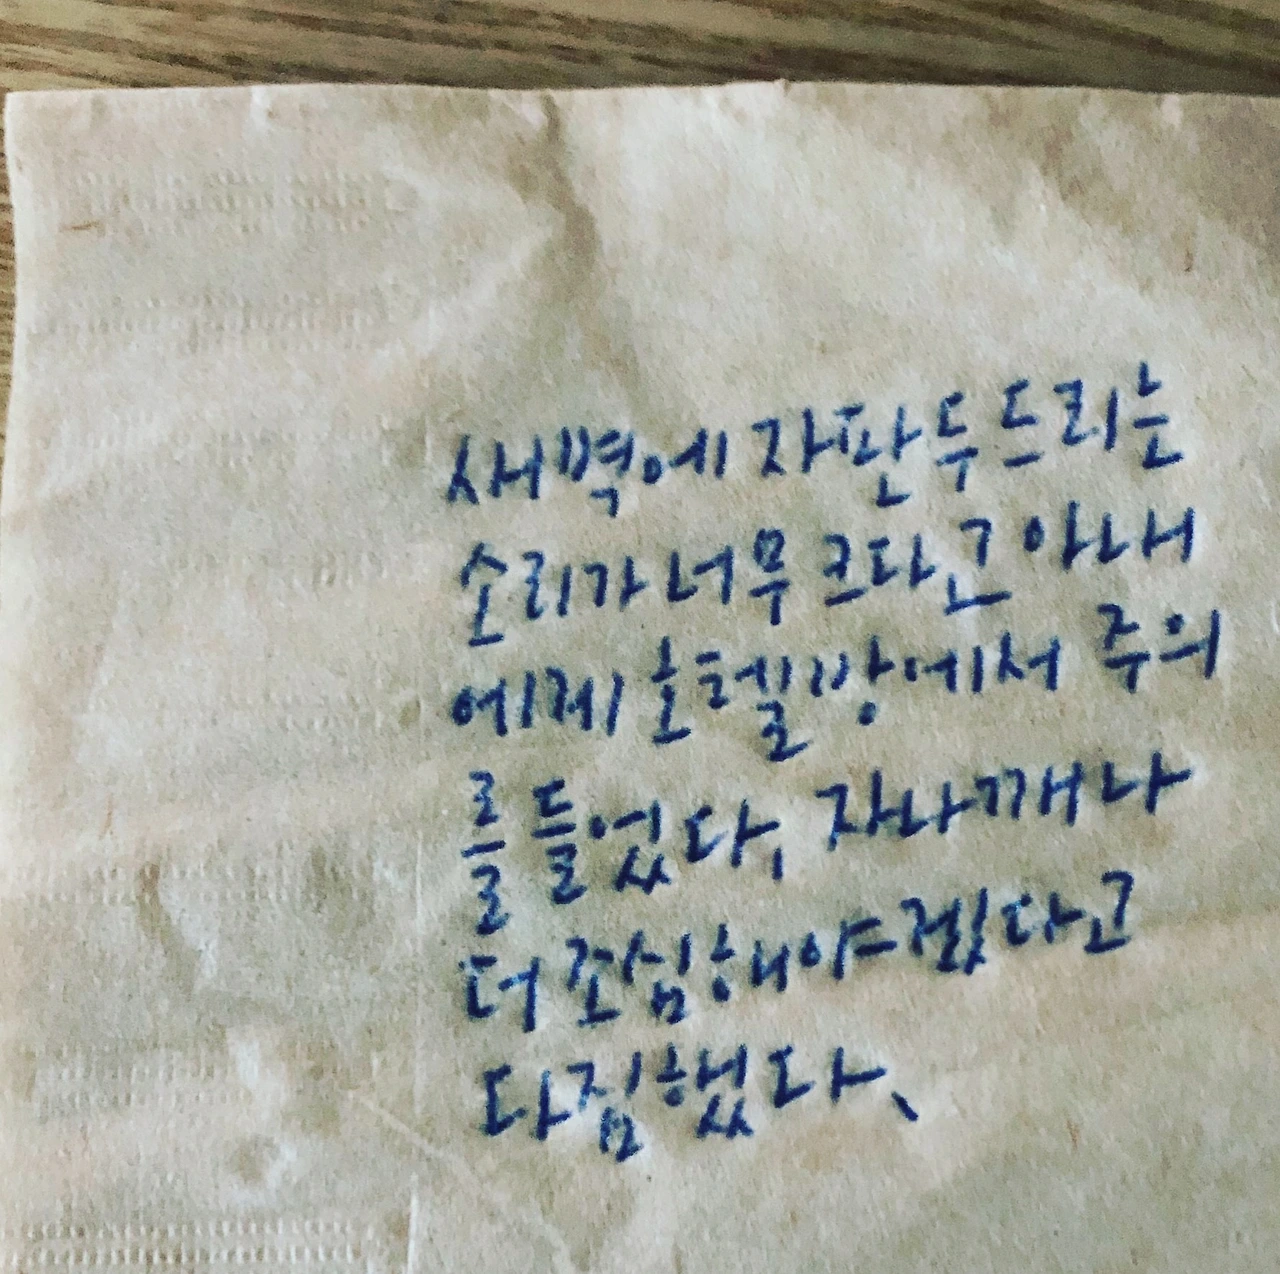 새벽에 자판 두드리는
소리가 너무 크다고 아내
에게 호텔방에서 주의
를 들었다, 자나깨나
더 조심해야겠다고
다짐했다.